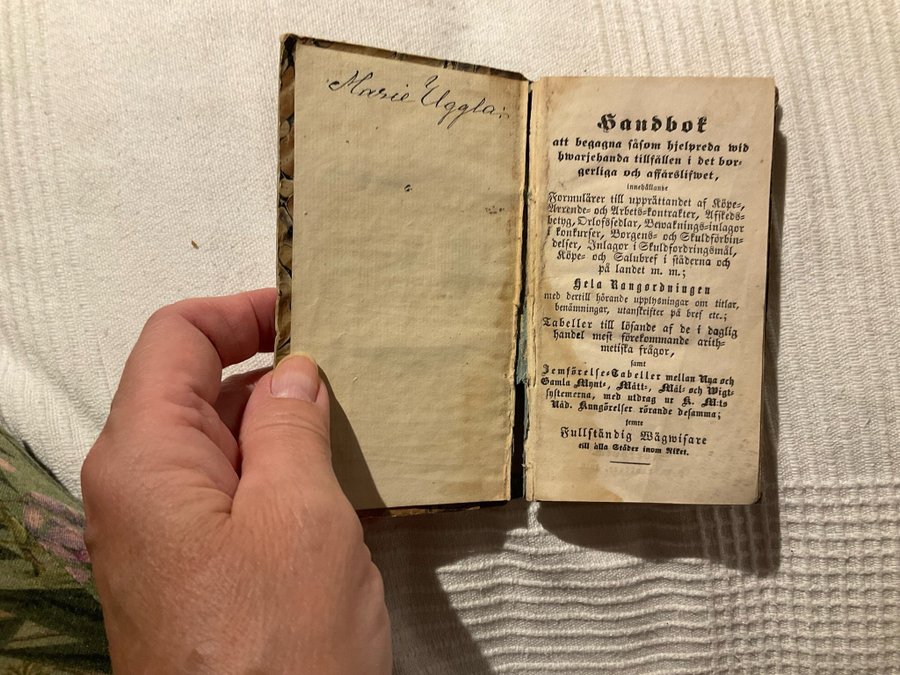 Marie Uggla.
Handbok
att begagna såsom hjelpreda wid
hwarjehanda tillfällen i det bor-
gerliga och affärslifwet,
innehållande
Formulärer till upprättandet af Köpe-,
Arrende- och Arbets-kontrakter, Afskeds-
betyg, Orlofssedlar, Bewaknings-inlagor
i konkurser, Borgens- och Skuldförbin-
delser, Inlagor i Skuldfordringsmål,
Köpe- och Salubref i städerna och
på landet m. m.;
Hela Rangordningen
med dertill hörande upplysningar om titlar,
benämningar, utanskrifter på bref etc.;
Tabeller till lösande af de i daglig
handel mest förekommande arith-
metiska frågor,
samt
Jemförelse-Tabeller mellan Nya och
Gamla Mynt-, Mått-, Mål- och Wigt-
systemerna, med utdrag ur K. M:ts
Nåd. Kungörelser rörande desamma;
jemte
Fullständig Wägwisare
till alla Städer inom Riket.